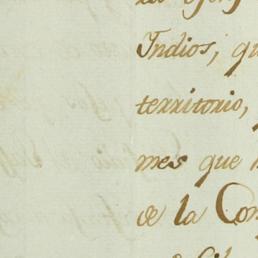 Indios, qu
territorio,
mes que
de la Con